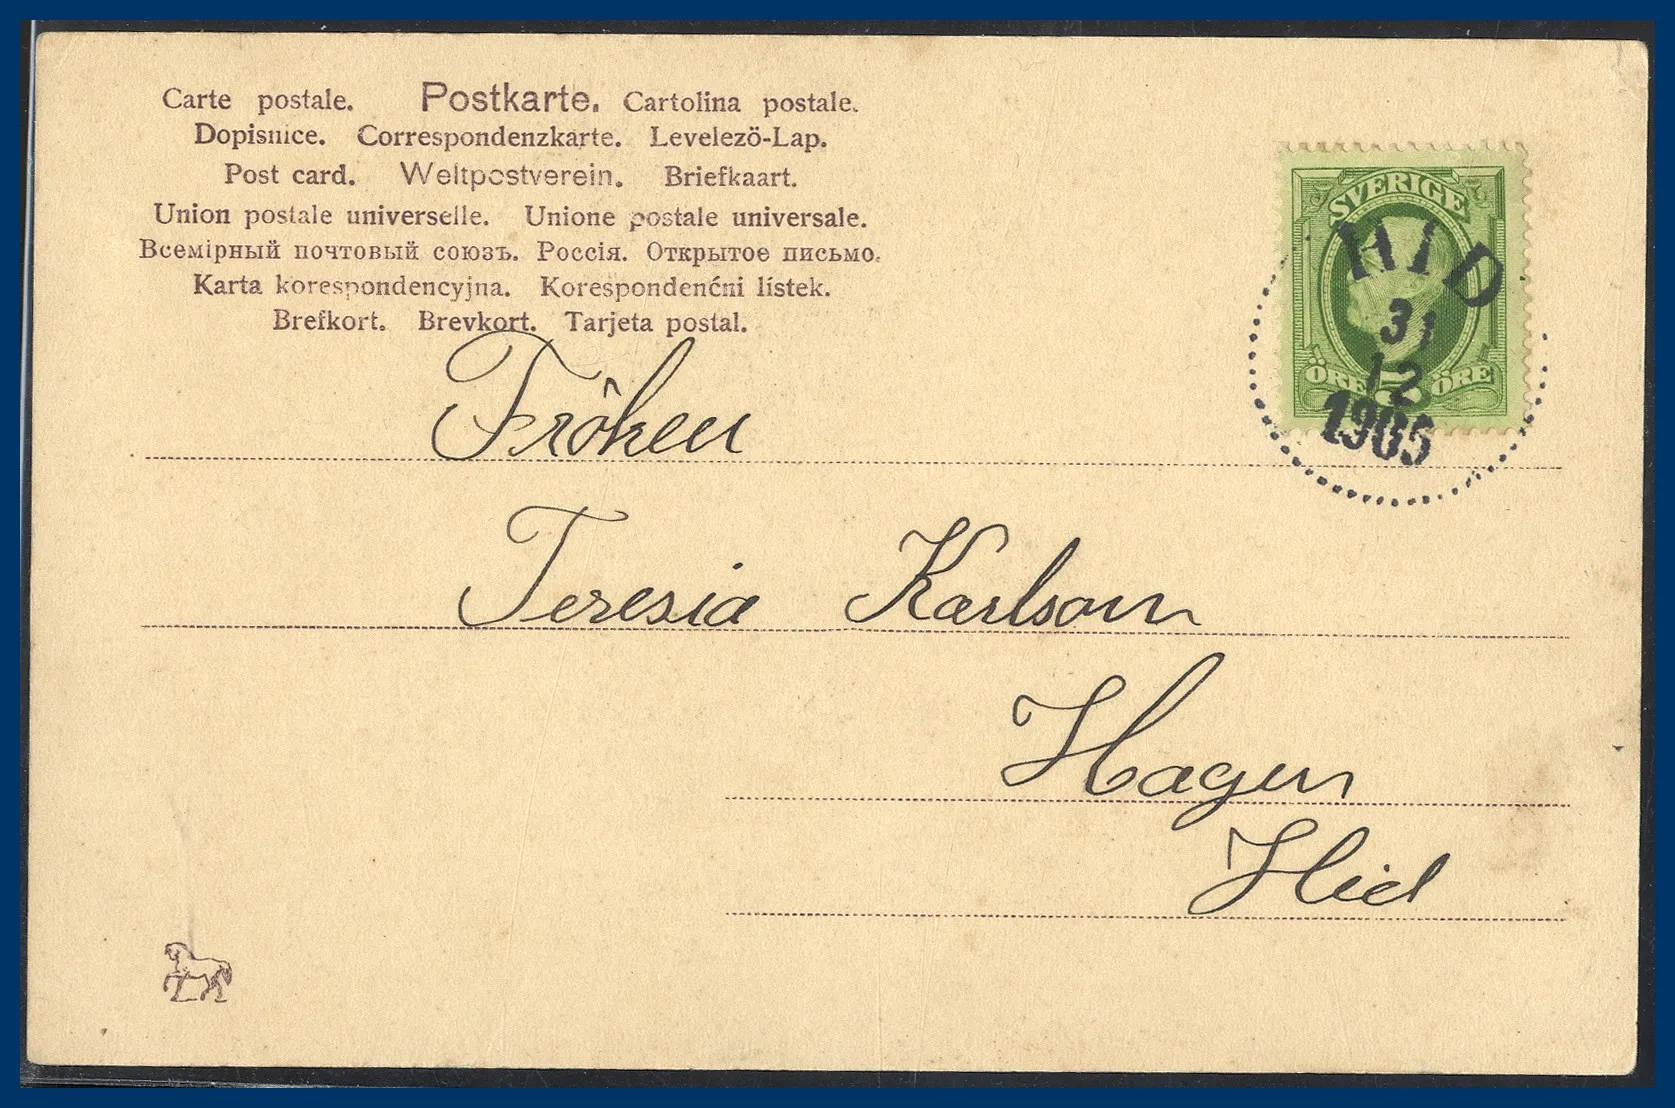 Carte postale. Postkarte. Cartolina postale.
Dopisnice. Correspondenzkarte. Levelezö-Lap.
Post card. Weltpostverein. Briefkaart.
Union postale universelle. Unione postale universale.
Всемірный почтовый союзъ. Россія. Открытое письмо.
Karta korespondencyjna. Korespondenćni lístek.
Brefkort. Brevkort. Tarjeta postal.
SVERIGE
HID
31
12
1905
ÖRE 5 ÖRE
Fröken
Teresia Karlson
Hagen
Hid